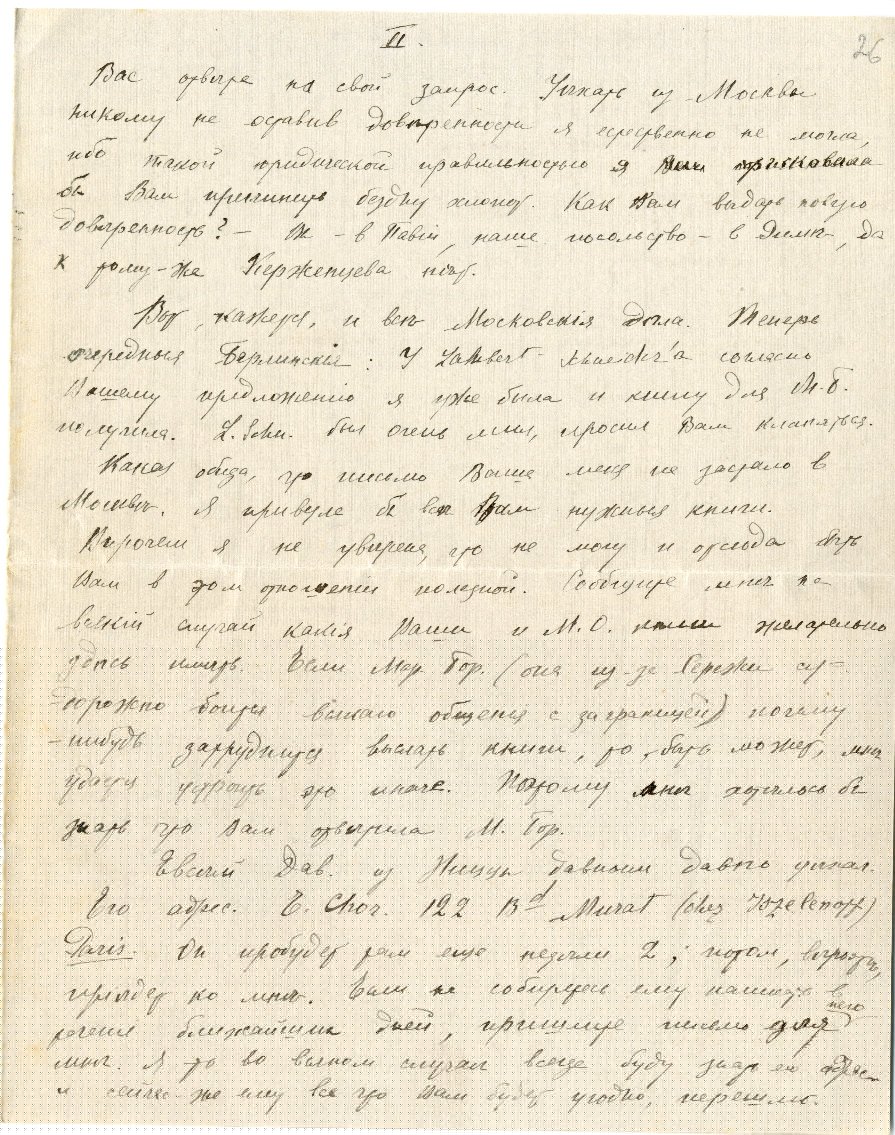 II.
26
Вас ответа на свой запрос. Уехать из Москвы
никому не оставив довѣренности я естественно не могла,
ибо такой юридической правильностью я
бы Вам причинить бездну хлопот. Как Вам выдать новую
довѣренность? — Вы — в Павіи, наше посольство — в Римѣ, да
к тому-же Керженцева нѣт.
Вот, кажется, и всѣ Московскія дѣла. Теперь
очередныя Берлинскія: У Lambert Schneider'а согласно
Вашему предложенію я уже была и книгу для М.Б.
получила. L. Schn. был очень мил, просил Вам кланяться.
Какая обида, что письмо Ваше меня не застало в
Москвѣ. Я привезла бы всѣ Вам нужныя книги.
Впрочем я не увѣрена, что не могу и отсюда быть
Вам в этом отношеніи полезной. Сообщите мнѣ на
всякій случай какія Ваши и М.О. книги желательно
здѣсь имѣть. Если Мар. Гор. (она из-за Сережи су-
дорожно боится всякаго общенія с заграницей) почему
-нибудь затруднится выслать книги, то, быть может, мнѣ
удастся устроить это иначе. Поэтому мнѣ хотѣлось бы
знать что Вам отвѣтила М. Гор.
Евсей Дав. из Ниццы давным давно уехал.
Его адрес. E. Chor. 122 Bd Murat (chez Iszelenoff)
Paris. Он пробудет там еще недѣли 2; потом, вѣроятно,
пріѣдет ко мнѣ. Если не собиретесь ему написать в
теченіе ближайших дней, пришлите письмо для него
мнѣ. Я-то во всяком случаѣ всегда буду знать его адрес
и сейчас-же ему все что Вам будет угодно, перешлю.